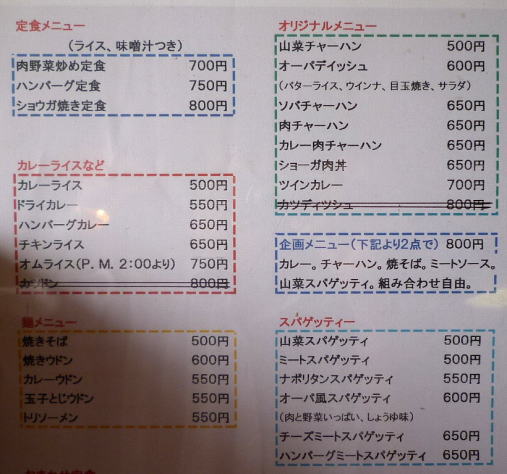 定食メニュー
(ライス、味噌汁つき)
肉野菜炒め定食 700円
ハンバーグ定食 750円
ショウガ焼き定食 800円
カレーライスなど
カレーライス 500円
ドライカレー 550円
ハンバーグカレー 650円
チキンライス 650円
オムライス(P. M. 2:00より) 750円
カツドン 800円
麺メニュー
焼きそば 500円
焼きウドン 600円
カレーウドン 550円
玉子とじウドン 550円
トリソーメン 550円
オリジナルメニュー
山菜チャーハン 500円
オーパディッシュ 600円
(バターライス、ウインナ、目玉焼き、サラダ)
ソバチャーハン 650円
肉チャーハン 650円
カレー肉チャーハン 650円
ショーガ肉丼 650円
ツインカレー 700円
カツディツシュ 800円
企画メニュー(下記より2点で) 800円
カレー。チャーハン。焼そば。ミートソース。
山菜スパゲッティ。組み合わせ自由。
スパゲッティー
山菜スパゲッティ 500円
ミートスパゲッティ 500円
ナポリタンスパゲッティ 550円
オーパ風スパゲッティ 600円
(肉と野菜いっぱい、しょうゆ味)
チーズミートスパゲッティ 650円
ハンバーグミートスパゲッティ 650円